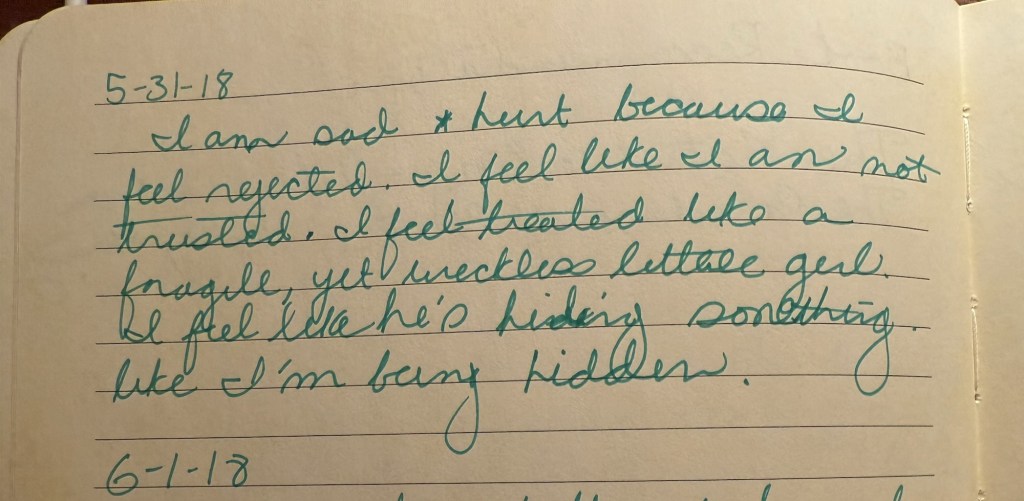 5-31-18
I am sad * hurt because I
feel rejected. I feel like I am not
trusted. I feel treated like a
fragile, yet wreckless little girl.
I feel like he's hiding something.
like I'm being hidden.
6-1-18